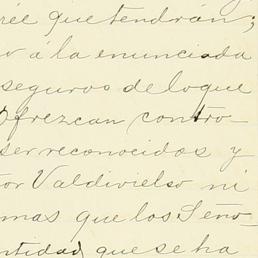 rée que tendrán;
o á la enunciada
seguros de loque
Ofrezcan contro-
ser reconocidos y
tor Valdivielso ni
mas que los Seño-
ntidad que se ha